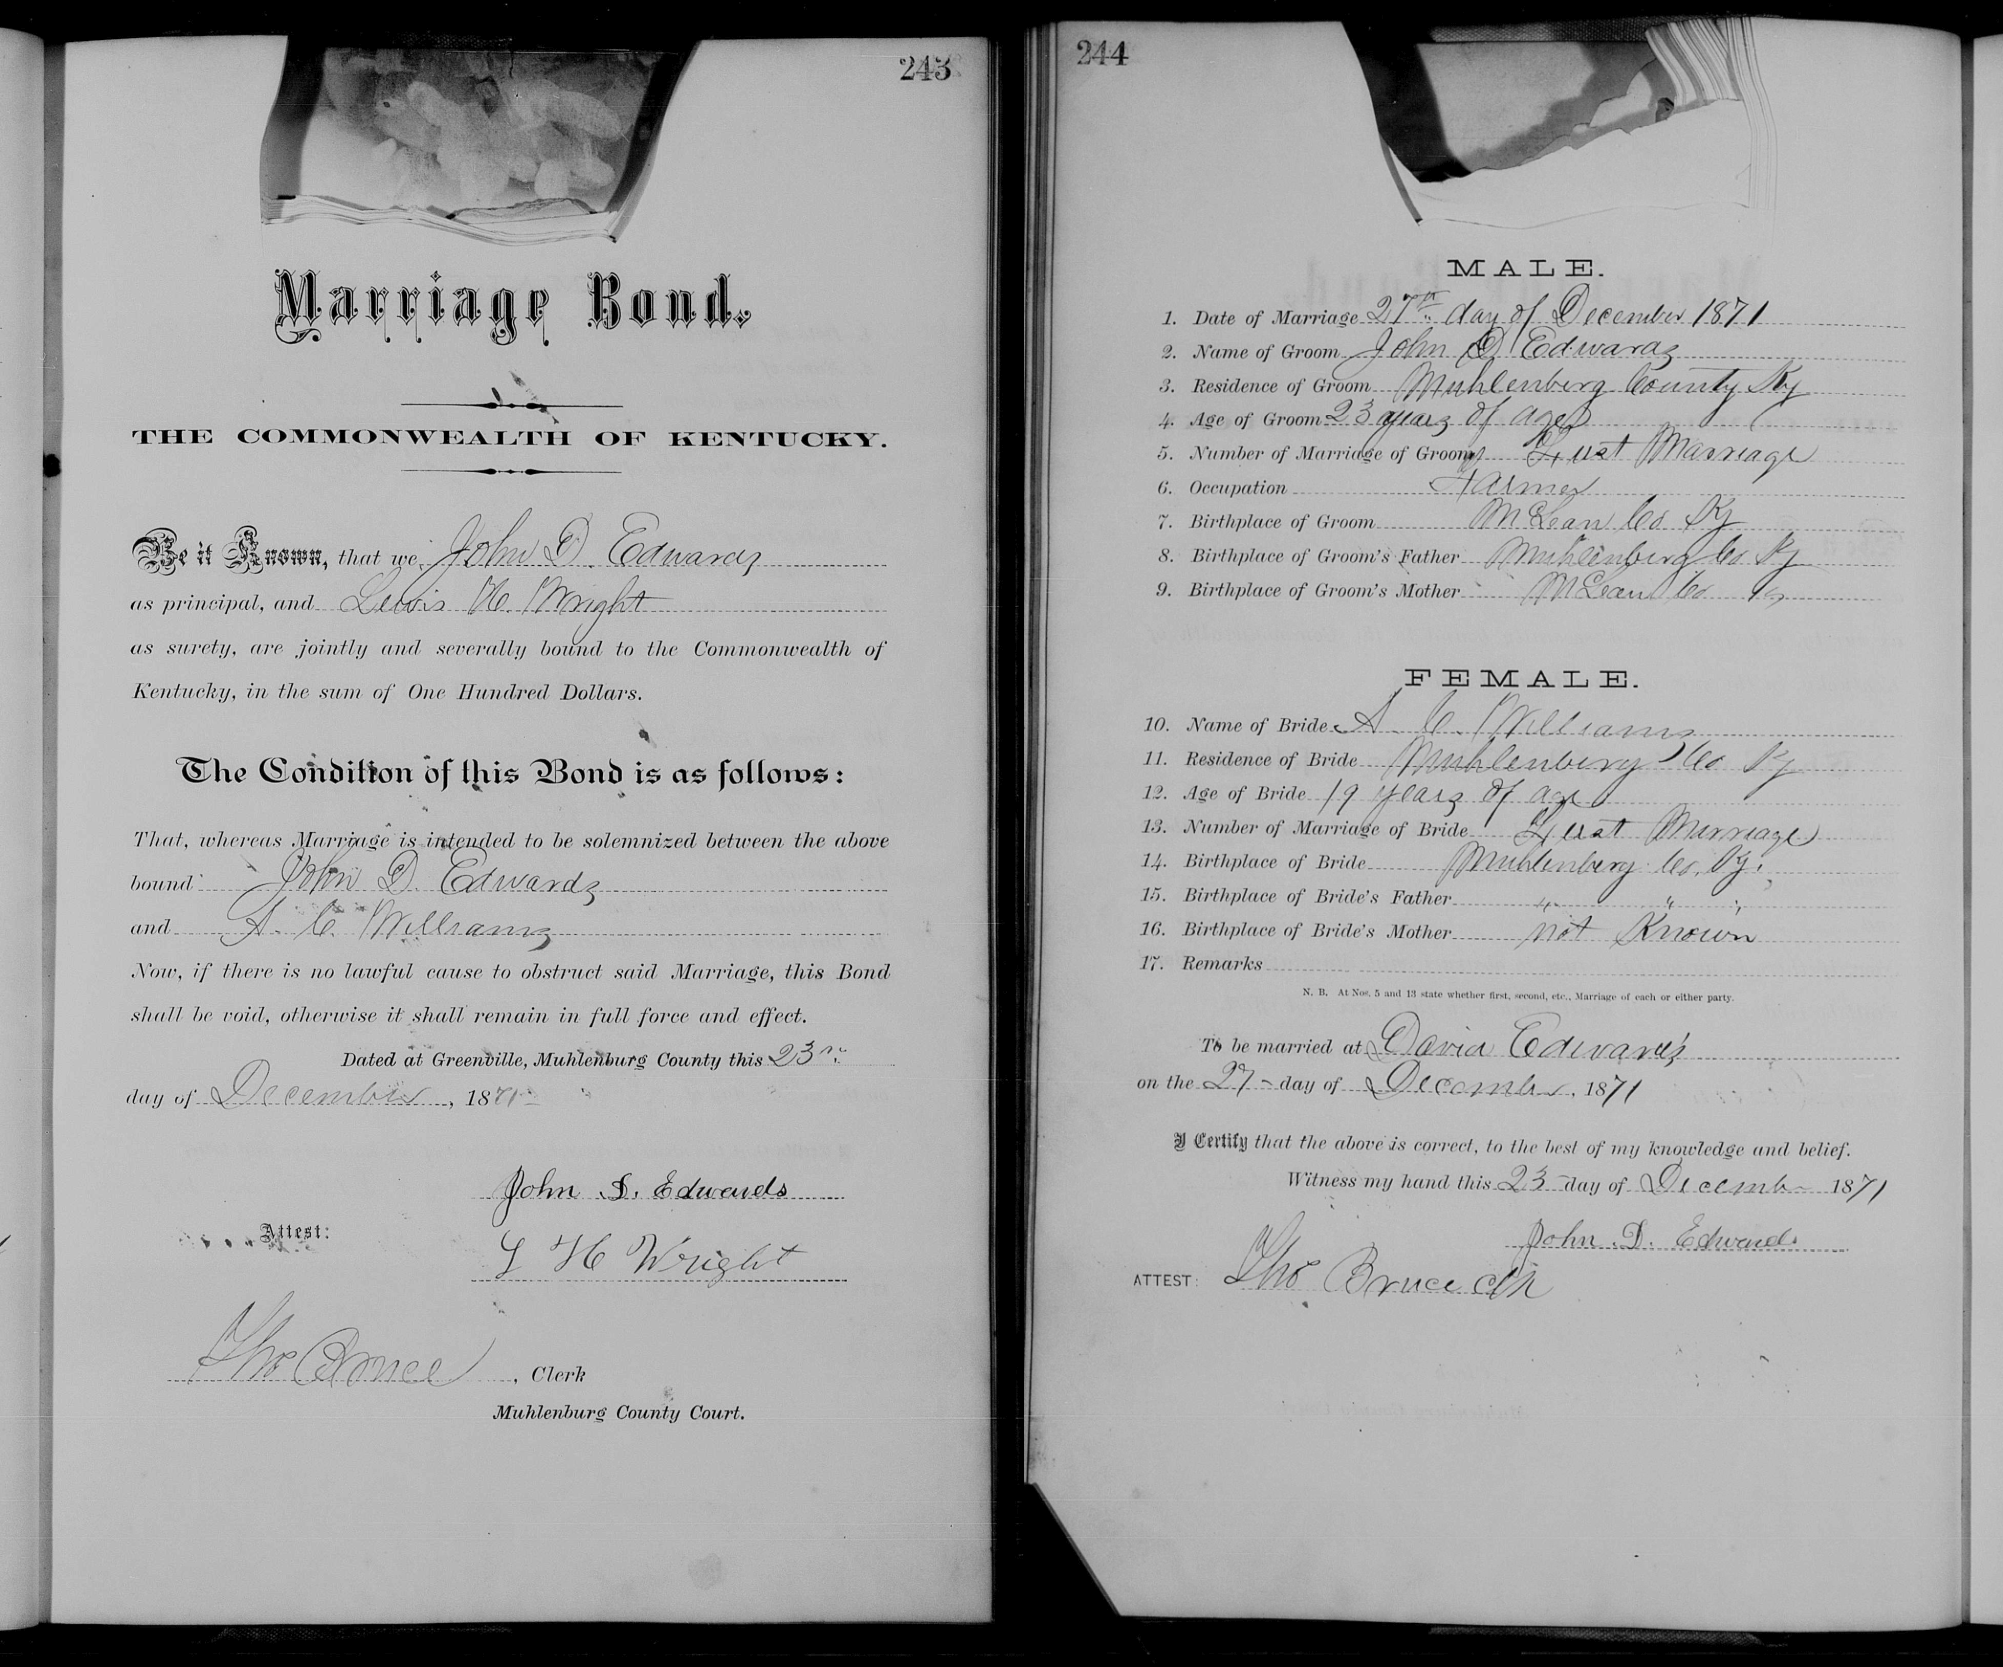 243
Marriage Bond.
THE COMMONWEALTH OF KENTUCKY.
Be it Known, that we John D. Edwards
as principal, and Lewis H. Wright
as surety, are jointly and severally bound to the Commonwealth of
Kentucky, in the sum of One Hundred Dollars.
The Condition of this Bond is as follows:
That, whereas Marriage is intended to be solemnized between the above
bound John D. Edwards
and A. C. Williams
Now, if there is no lawful cause to obstruct said Marriage, this Bond
shall be void, otherwise it shall remain in full force and effect.
Dated at Greenville, Muhlenburg County this 23rd
day of December, 1871
John D. Edwards
Attest:
L H Wright
Tho Bruce, Clerk
Muhlenburg County Court.
244
MALE.
1. Date of Marriage 27th day of December 1871
2. Name of Groom John D Edwards
3. Residence of Groom Muhlenberg County Ky
4. Age of Groom 23 years of age
5. Number of Marriage of Groom First Marriage
6. Occupation Farmer
7. Birthplace of Groom McLean Co Ky
8. Birthplace of Groom's Father Muhlenberg Co Ky
9. Birthplace of Groom's Mother McLean Co Ky
FEMALE.
10. Name of Bride A. C. Williams
11. Residence of Bride Muhlenberg Co Ky
12. Age of Bride 19 years of age
13. Number of Marriage of Bride First Marriage
14. Birthplace of Bride Muhlenberg Co. Ky.
15. Birthplace of Bride's Father " " "
16. Birthplace of Bride's Mother not Known
17. Remarks
N. B. At Nos. 5 and 13 state whether first, second, etc., Marriage of each or either party.
To be married at David Edward's
on the 27 day of December, 1871
I Certify that the above is correct, to the best of my knowledge and belief.
Witness my hand this 23 day of December 1871
John D. Edwards
ATTEST: Tho Bruce Clk